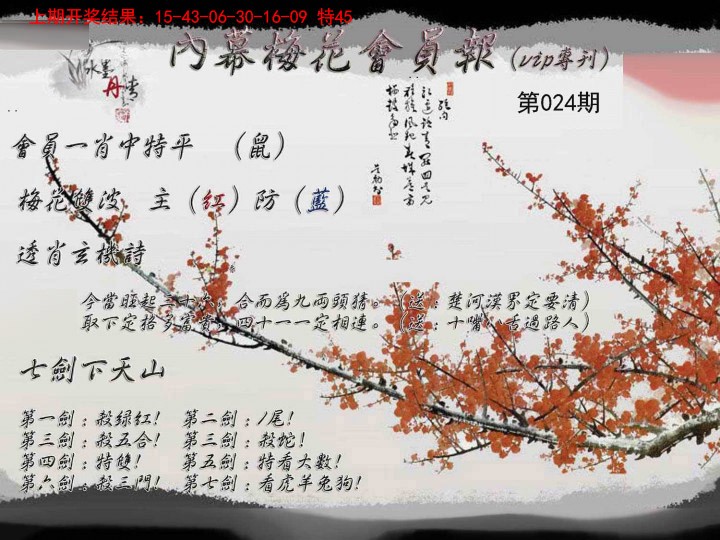 上期开奖结果：15-43-06-30-16-09 特45
內幕梅花會員報(vip專刊)
水墨丹情
第024期
會員一肖中特平 （鼠）
梅花雙波 主（红）防（藍）
透肖玄機詩
今當旺起三十六，合而為九兩頭猜。（送：楚河漢界定要清）
取下定拾多富貴，四十一一定相連。（送：十嘴八舌過路人）
七劍下天山
第一劍：殺绿红! 第二劍：1尾!
第三劍：殺五合! 第三劍：殺蛇!
第四劍：特雙! 第五劍：特看大數!
第六劍：殺三門! 第七劍：看虎羊兔狗!